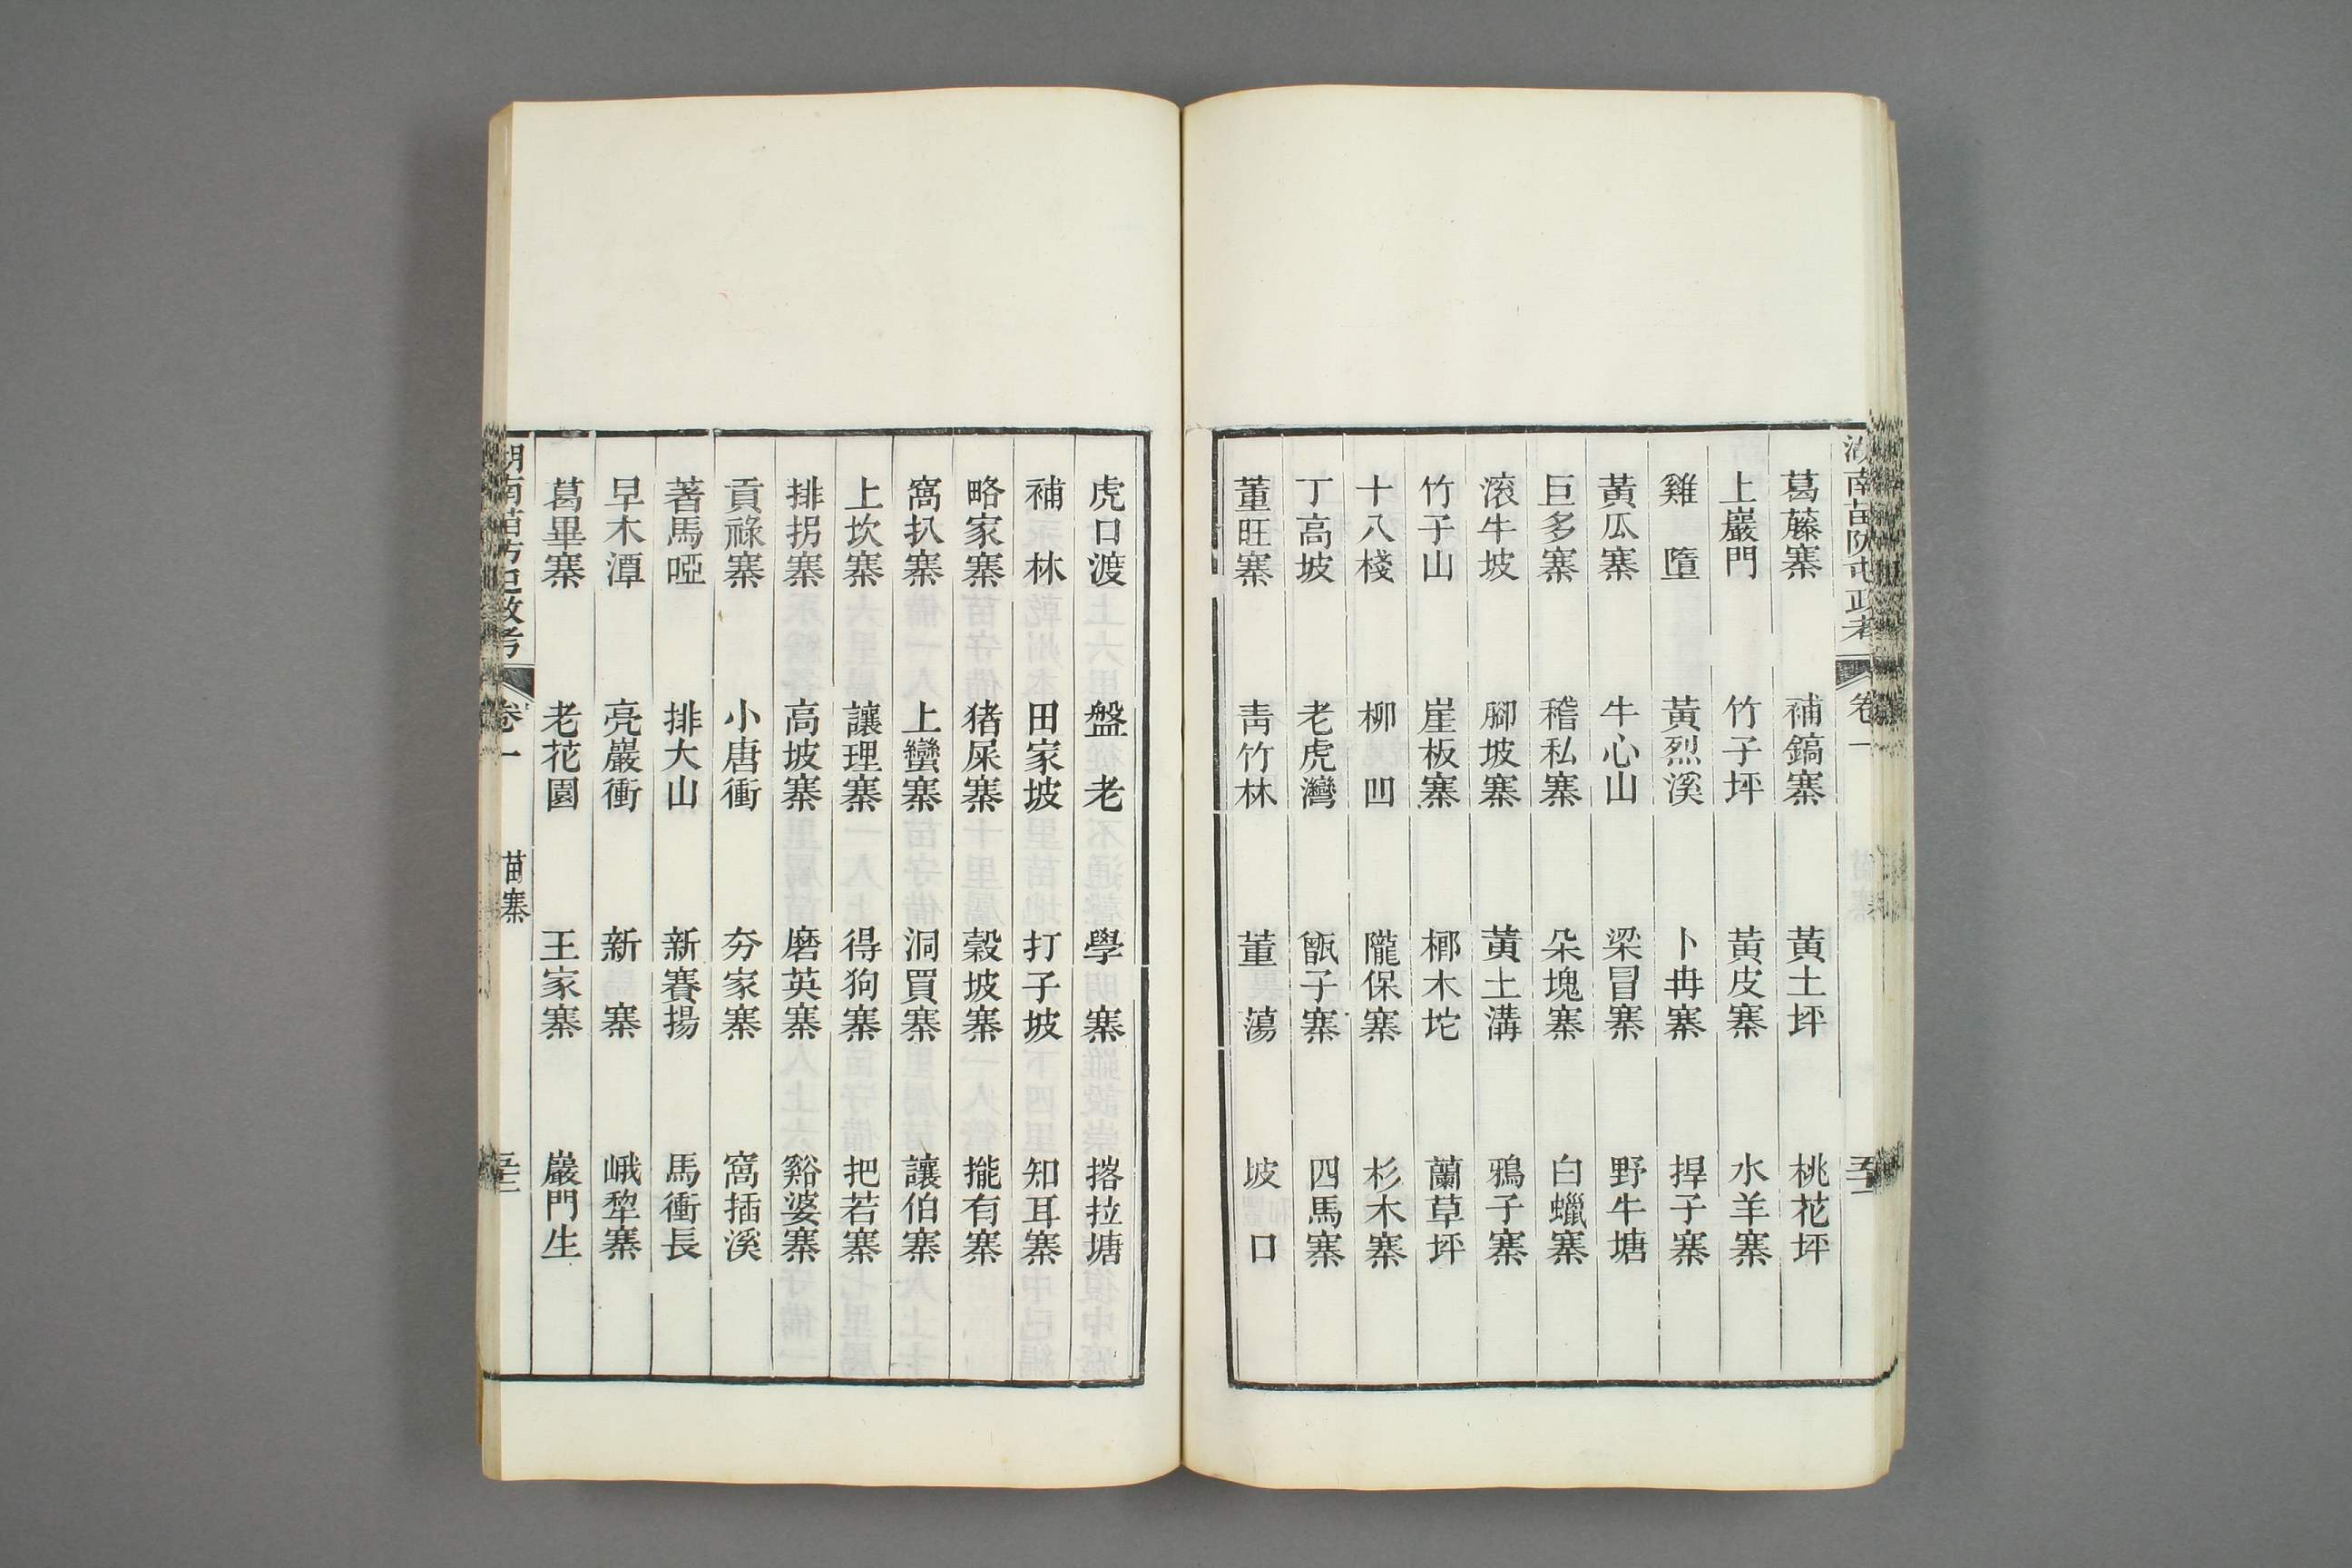 湖南苗防屯政考 卷一
葛藤寨 補鎬寨 黃土坪 桃花坪
上巖門 竹子坪 黃皮寨 水羊寨
雞墮 黃烈溪 卜冉寨 捍子寨
黃瓜寨 牛心山 梁冒寨 野牛塘
巨多寨 稽私寨 朵塊寨 白蠟寨
滾牛坡 腳坡寨 黃土溝 鴉子寨
竹子山 崖板寨 榔木坨 蘭草坪
十八棧 柳凹 隴保寨 杉木寨
丁高坡 老虎灣 甑子寨 四馬寨
董旺寨 靑竹林 董蕩 坡口
虎口渡 盤老 學寨 撘拉塘
補林 田家坡 打子坡 知耳寨
略家寨 猪屎寨 穀坡寨 攏有寨
窩扒寨 上蠻寨 洞買寨 讓伯寨
上坎寨 讓理寨 得狗寨 把若寨
排拐寨 高坡寨 磨英寨 谿婆寨
貢祿寨 小唐衝 夯家寨 窩插溪
著馬啞 排大山 新賽揚 馬衝長
早木潭 亮巖衝 新寨 峨犂寨
葛畢寨 老花園 王家寨 巖門生
湖南苗防屯政考 卷一 苗寨